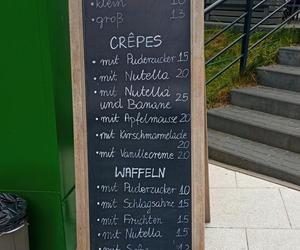 • klein 10
• groß 13
CRÊPES
• mit Puderzucker 15
• mit Nutella 20
• mit Nutella
und Banane 25
• mit Apfelmousse 20
• mit Kirschmarmelade
20
• mit Vanillecreme 20
WAFFELN
• mit Puderzucker 10
• mit Schlagsahne 15
• mit Früchten 15
• mit Nutella 15
• mit